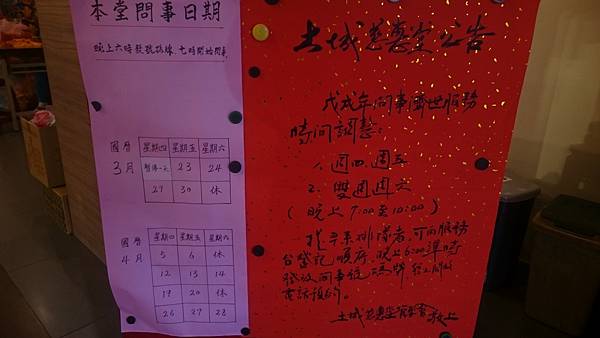 本堂問事日期
晚上六時發號碼牌，七時開始問事
國曆
3月
星期四 星期五 星期六
暫停一天 23 24
29 30 休
國曆
4月
星期四 星期五 星期六
5 6 休
12 13 14
19 20 休
26 27 28
土城慈惠堂公告
戊戌年問事濟世服務
時间調整：
1. 週四.週五
2. 雙週週六
(晚上7:00至10:00)
排隊者,可向服務
台登記順序,晚上6:00準時
發放问事號碼牌
電話預約。
土城慈惠堂 敬上